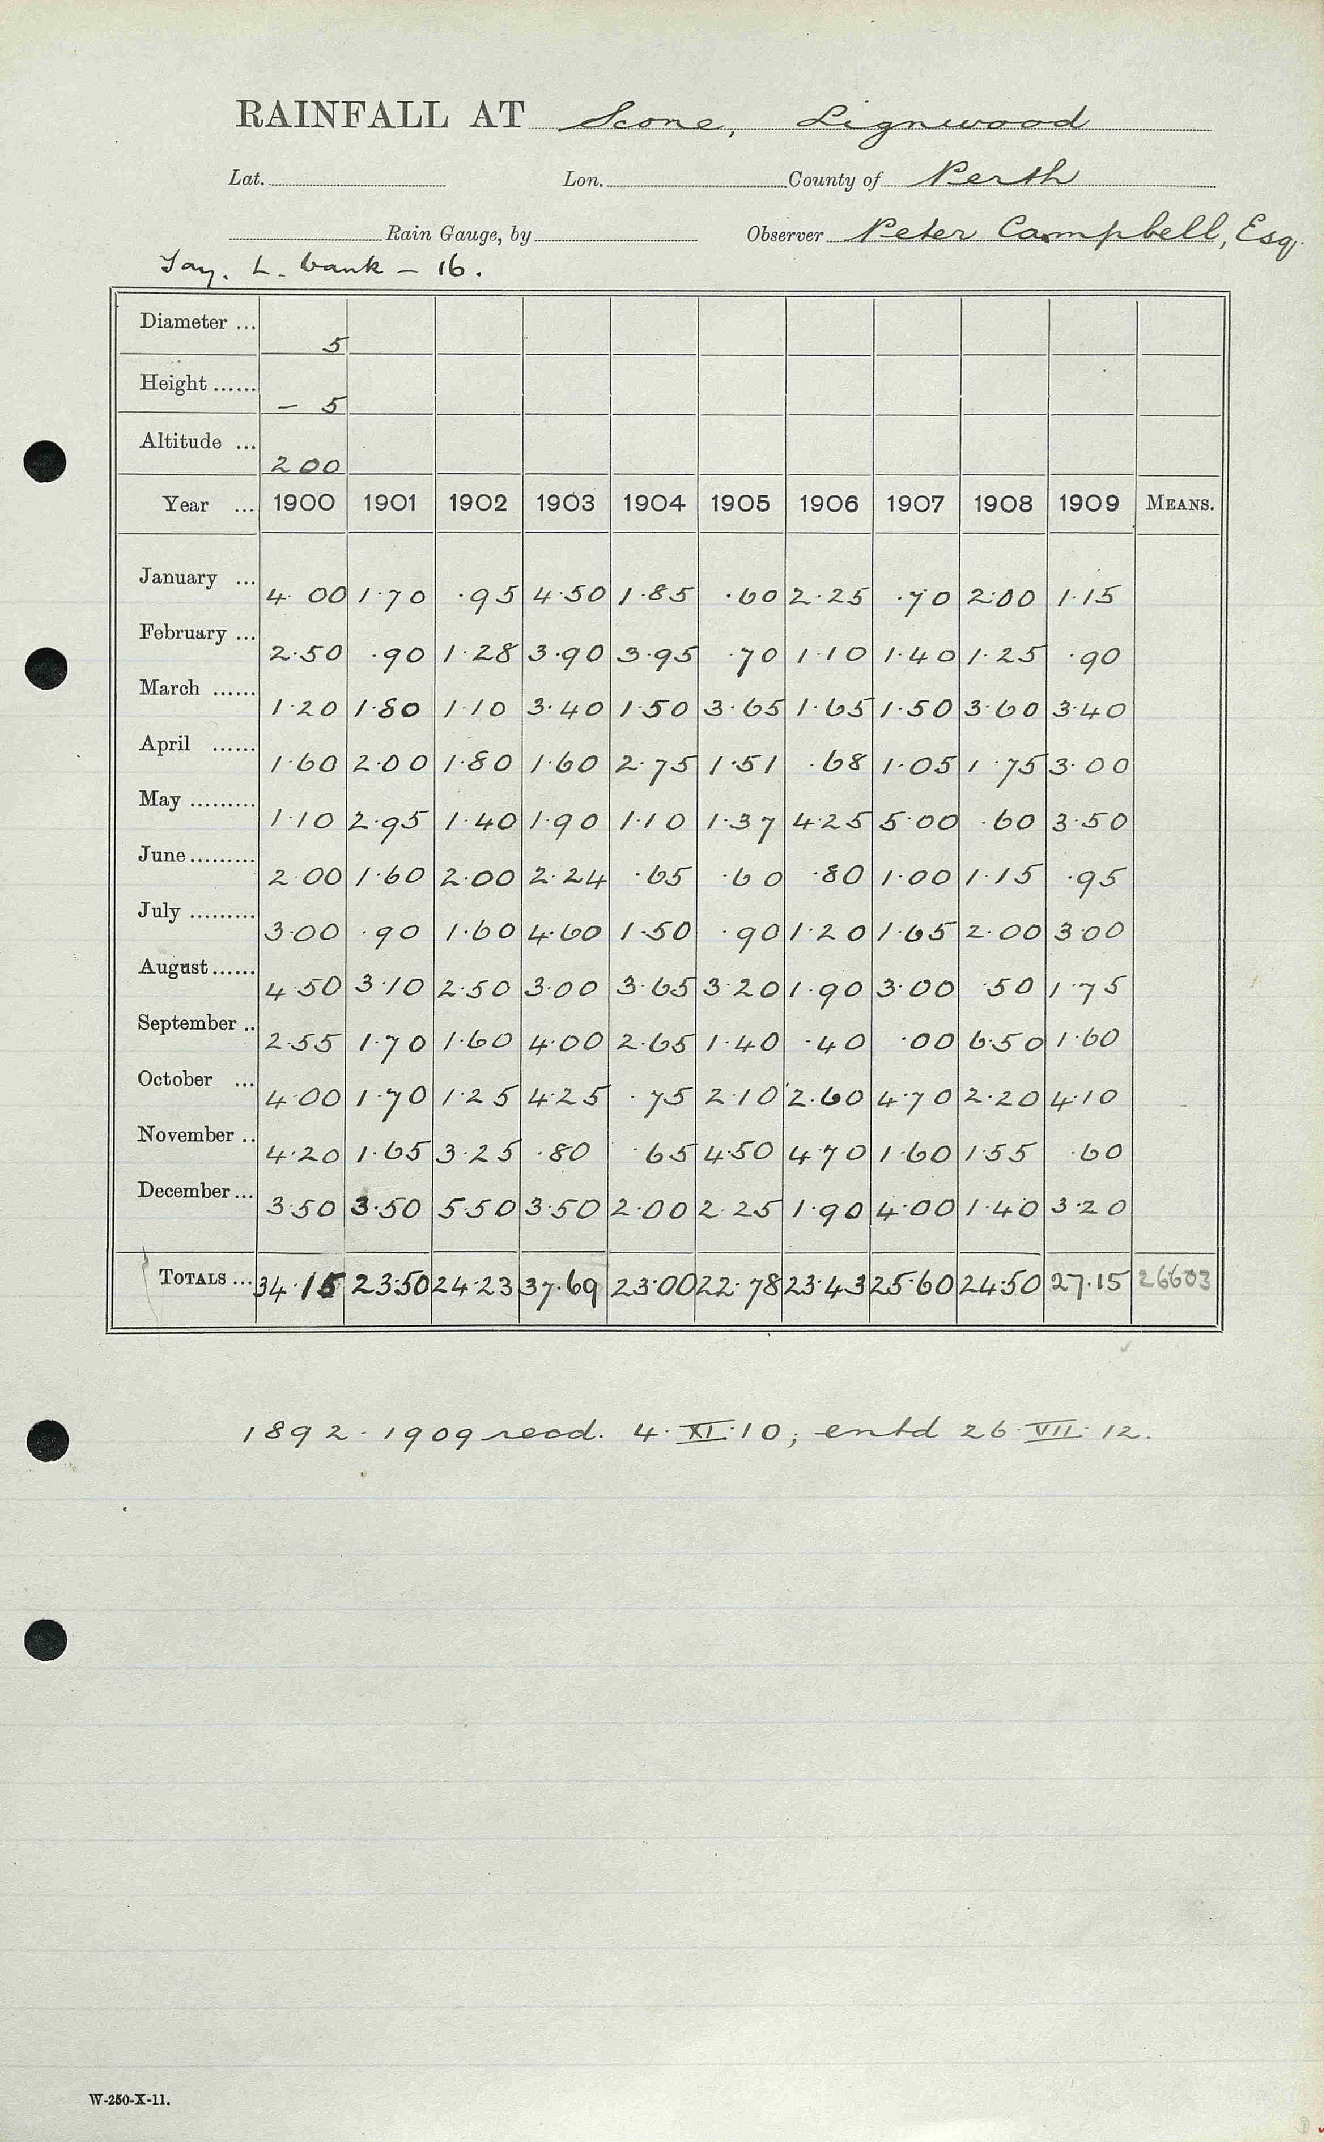 RAINFALL AT Scone, Lignwood
Lat. Lon. County of Perth
Rain Gauge, by Observer Peter Campbell, Esq.
Tay. L. bank – 16.
Diameter ... 5
Height ...... – 5
Altitude ... 200
Year ... 1900 1901 1902 1903 1904 1905 1906 1907 1908 1909 MEANS.
January ... 4.00 1.70 .95 4.50 1.85 .60 2.25 .70 2.00 1.15
February ... 2.50 .90 1.28 3.90 3.95 .70 1.10 1.40 1.25 .90
March ...... 1.20 1.80 1.10 3.40 1.50 3.65 1.65 1.50 3.60 3.40
April ...... 1.60 2.00 1.80 1.60 2.75 1.51 .68 1.05 1.75 3.00
May ......... 1.10 2.95 1.40 1.90 1.10 1.37 4.25 5.00 .60 3.50
June ......... 2.00 1.60 2.00 2.24 .65 .60 .80 1.00 1.15 .95
July ......... 3.00 .90 1.60 4.60 1.50 .90 1.20 1.65 2.00 3.00
August ...... 4.50 3.10 2.50 3.00 3.65 3.20 1.90 3.00 .50 1.75
September .. 2.55 1.70 1.60 4.00 2.65 1.40 .40 .00 6.50 1.60
October ... 4.00 1.70 1.25 4.25 .75 2.10 2.60 4.70 2.20 4.10
November .. 4.20 1.65 3.25 .80 .65 4.50 4.70 1.60 1.55 .60
December ... 3.50 3.50 5.50 3.50 2.00 2.25 1.90 4.00 1.40 3.20
TOTALS ... 34.15 23.50 24.23 37.69 23.00 22.78 23.43 25.60 24.50 27.15 26603
1892 - 1909 recd. 4.XI.10; entd 26.VII.12.
W-250-X-11.